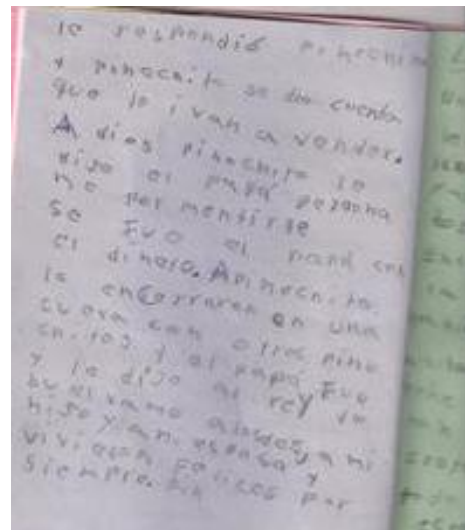 le respondió pinochito
y pinochito se dio cuenta
que lo ivan a vender.
A dios pinochito le
dijo el papá perdona
me por mentirte
se fue el papá con
el dinero. A pinochito
lo encerraron en una
cueva con otros pino
chitos y el papá fue
y le dijo al rey
buelvame a mi
hijo y a mi esposa y
vivieron felices por
siempre. Fin